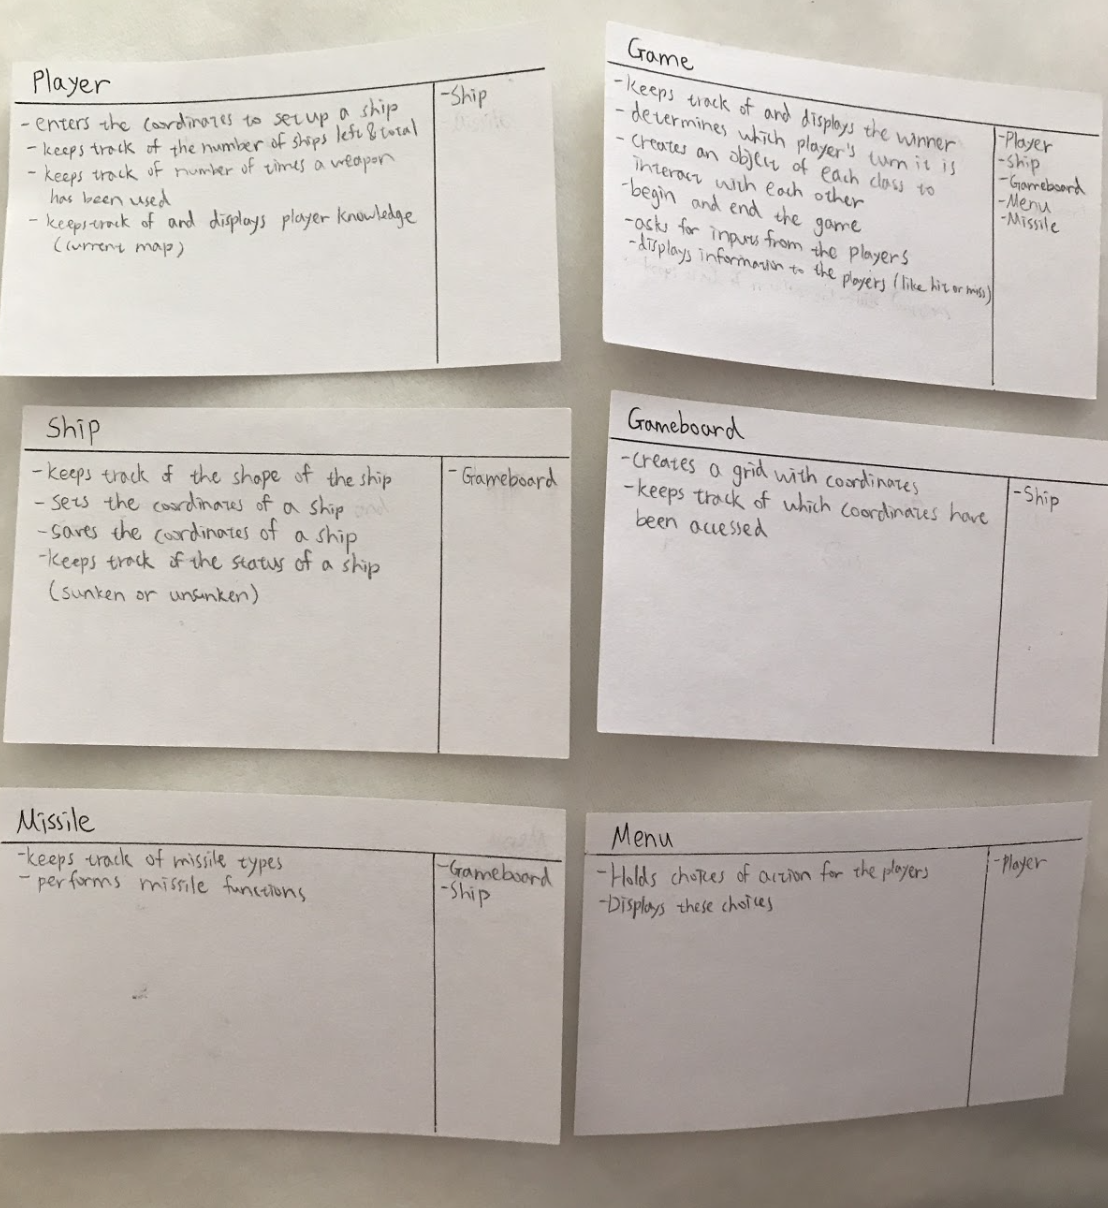 Player
- enters the coordinates to set up a ship
- keeps track of the number of ships left & total
- keeps track of number of times a weapon
has been used
- keeps track of and displays player knowledge
(current map)
- Ship
Game
- keeps track of and displays the winner
- determines which player's turn it is
- creates an object of each class to
interact with each other
- begin and end the game
- asks for inputs from the players
- displays information to the players (like hit or miss)
- Player
- Ship
- Gameboard
- Menu
- Missile
Ship
- keeps track of the shape of the ship
- sets the coordinates of a ship
- saves the coordinates of a ship
- keeps track of the status of a ship
(sunken or unsunken)
- Gameboard
Gameboard
- creates a grid with coordinates
- keeps track of which coordinates have
been accessed
- Ship
Missile
- keeps track of missile types
- performs missile functions
- Gameboard
- Ship
Menu
- Holds choices of action for the players
- Displays these choices
- Player